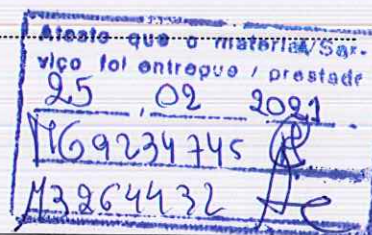 Atesto que o material/Ser-
viço foi entregue / prestado
25 , 02 2021
MG9234745
M3264432